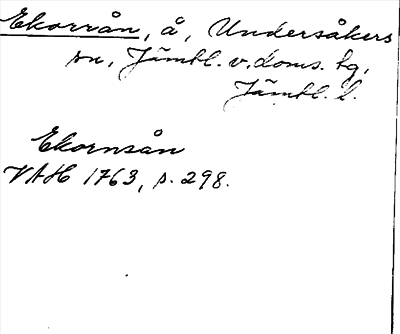 Ekorrån, å, Undersåkers
sn, Jämtl. v. doms. tg,
Jämtl. l.
Ekornsån
VAH 1763, s. 298.